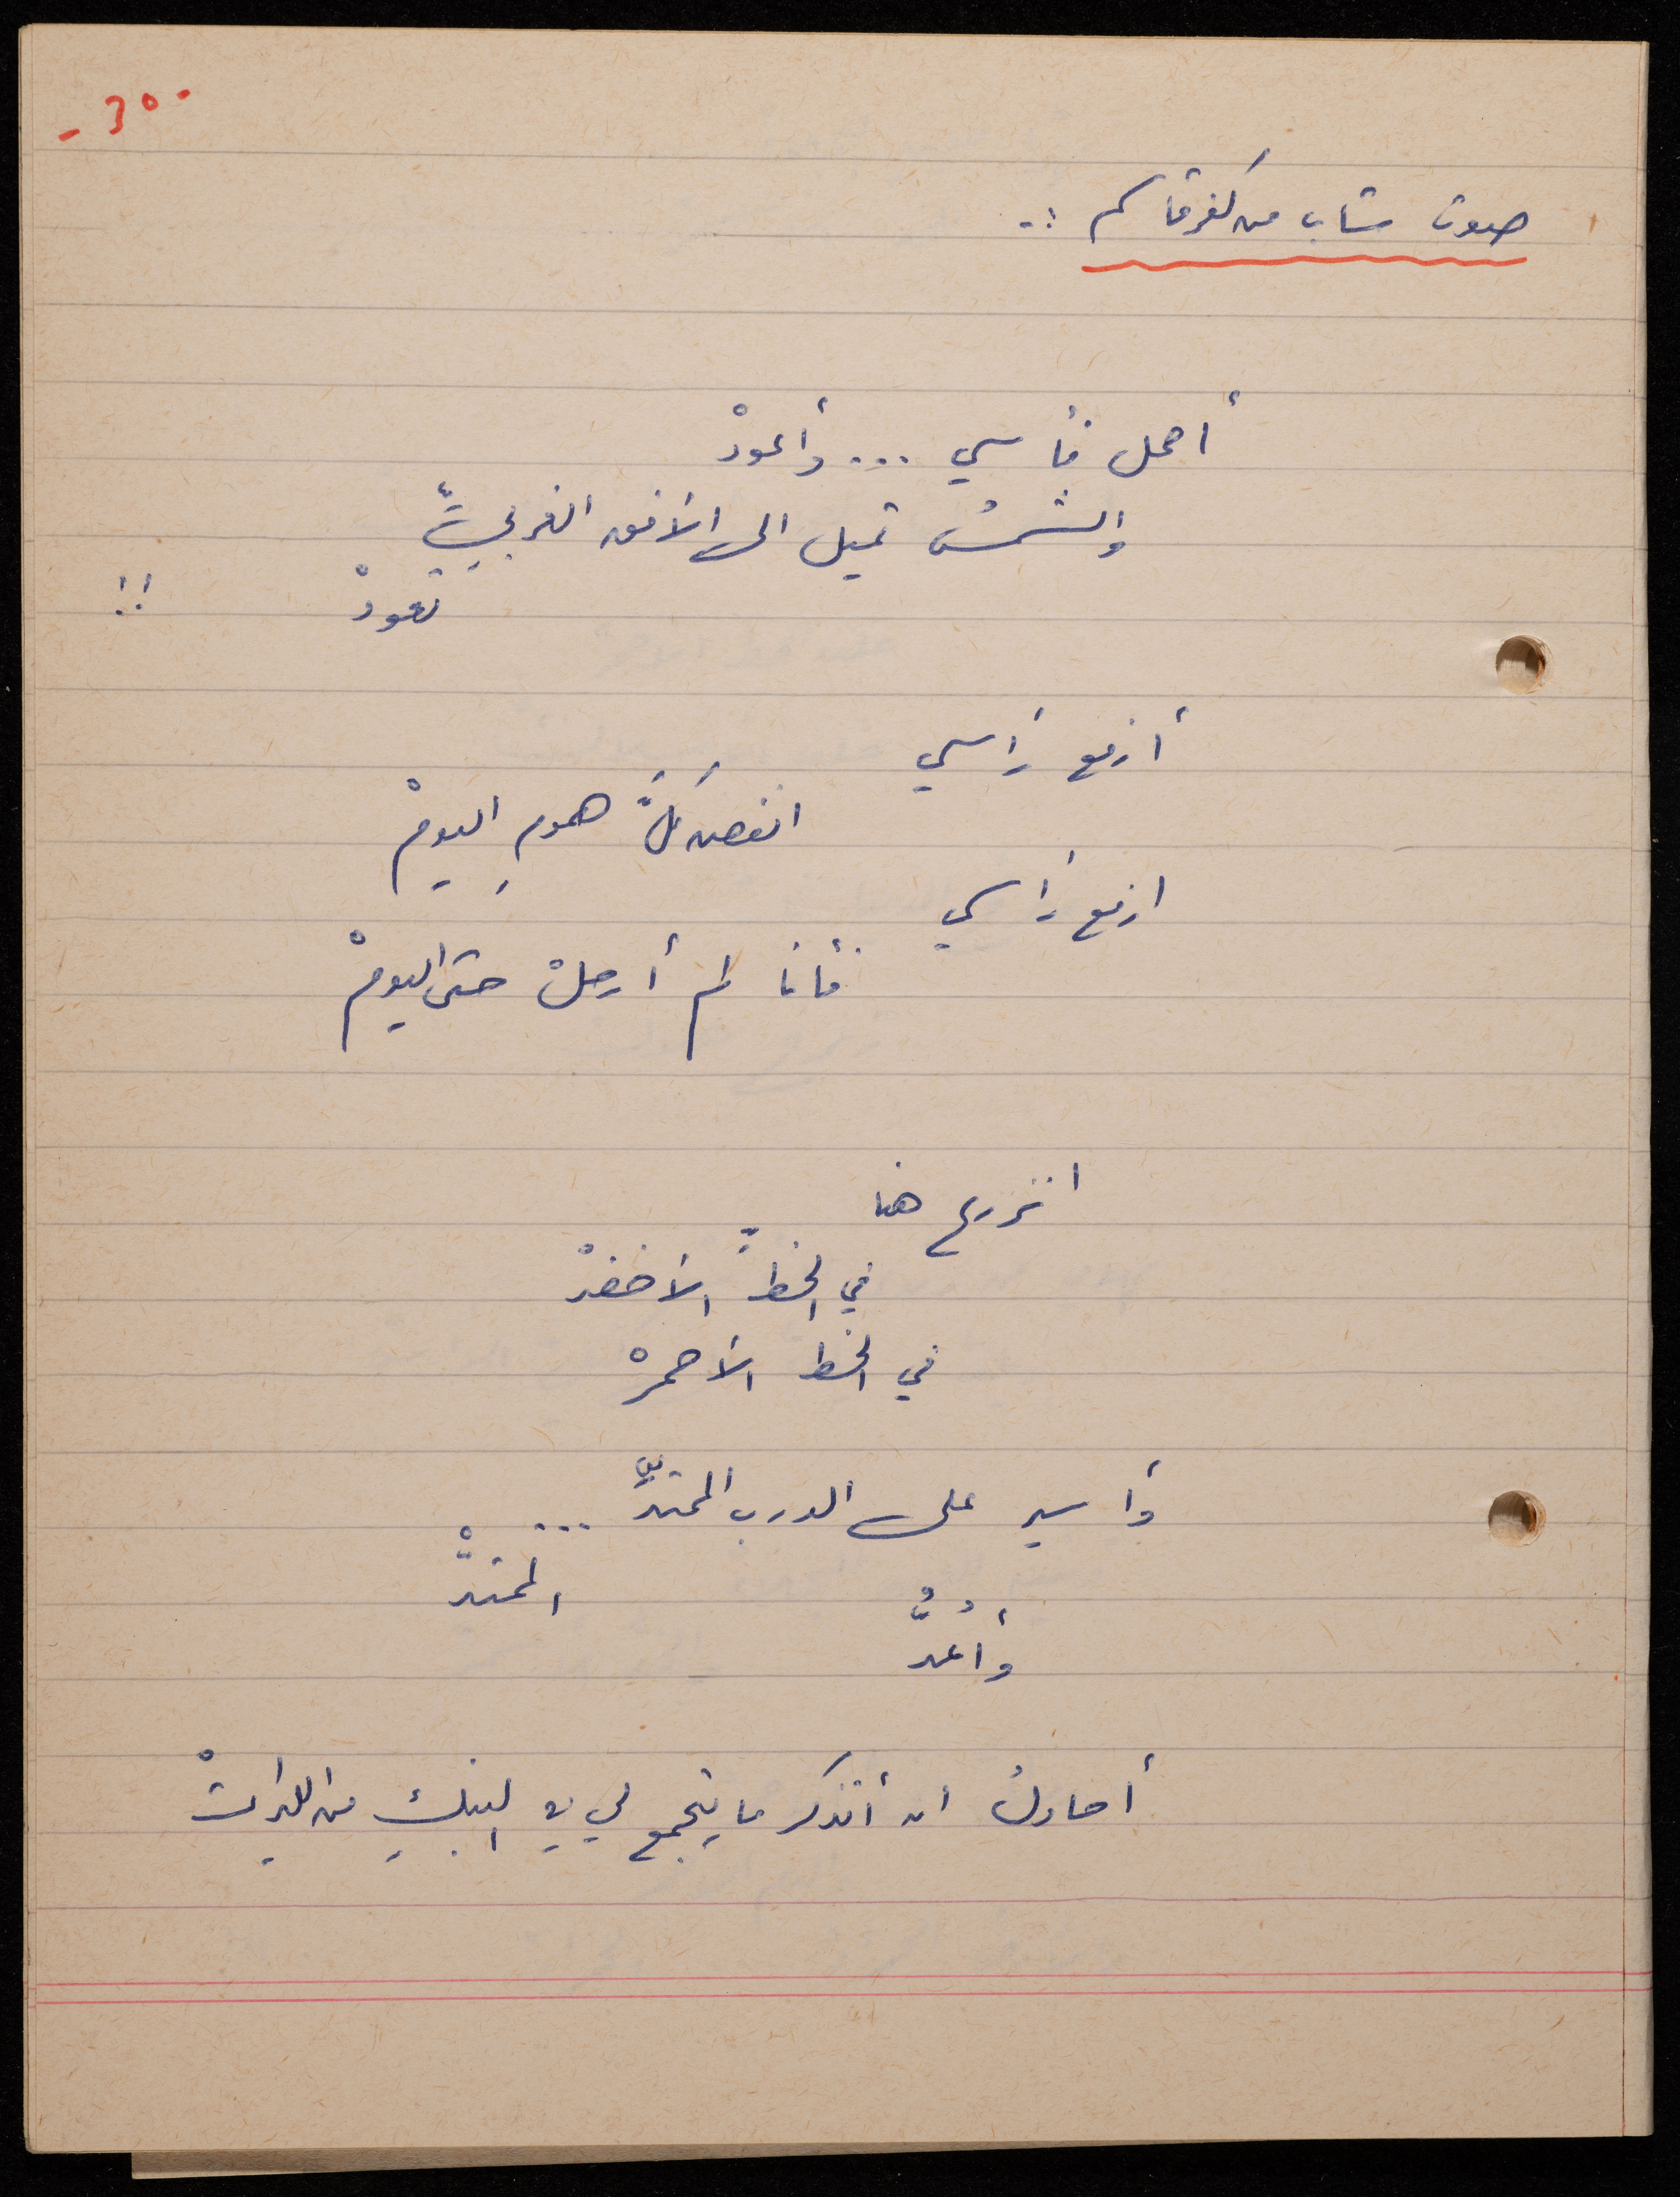 - 30 -
صوت شاب من كفر قاسم :-
أحمل فأسي ... وأعودْ
والشمسُ تميل الى الأفق الغربيِّ
تعودْ !!
أرفع رأسي
انفض كلَّ همومِ اليومْ
ارفع رأسي
فأنا لم أرحلْ حتى اليومْ
انزرع هنا
في الخطِّ الأخضرْ
في الخط الأحمرْ
وأسير على الدرب الممتدِّ ...
الممتدّْ
وأعُدُّ
أحاولُ ان أتذكر ما يتجمع لي في البنكِ من الليراتْ